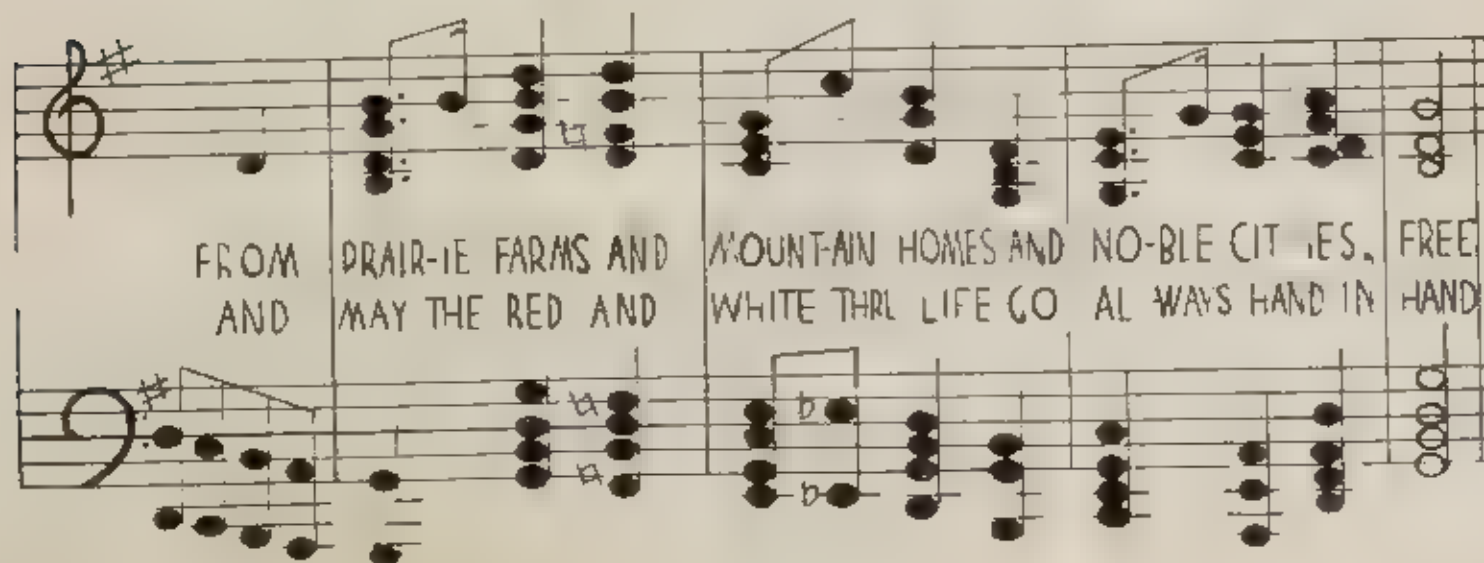 FROM PRAIR-IE FARMS AND MOUNT-AIN HOMES AND NO-BLE CIT IES, FREE
AND MAY THE RED AND WHITE THRU LIFE GO AL WAYS HAND IN HAND